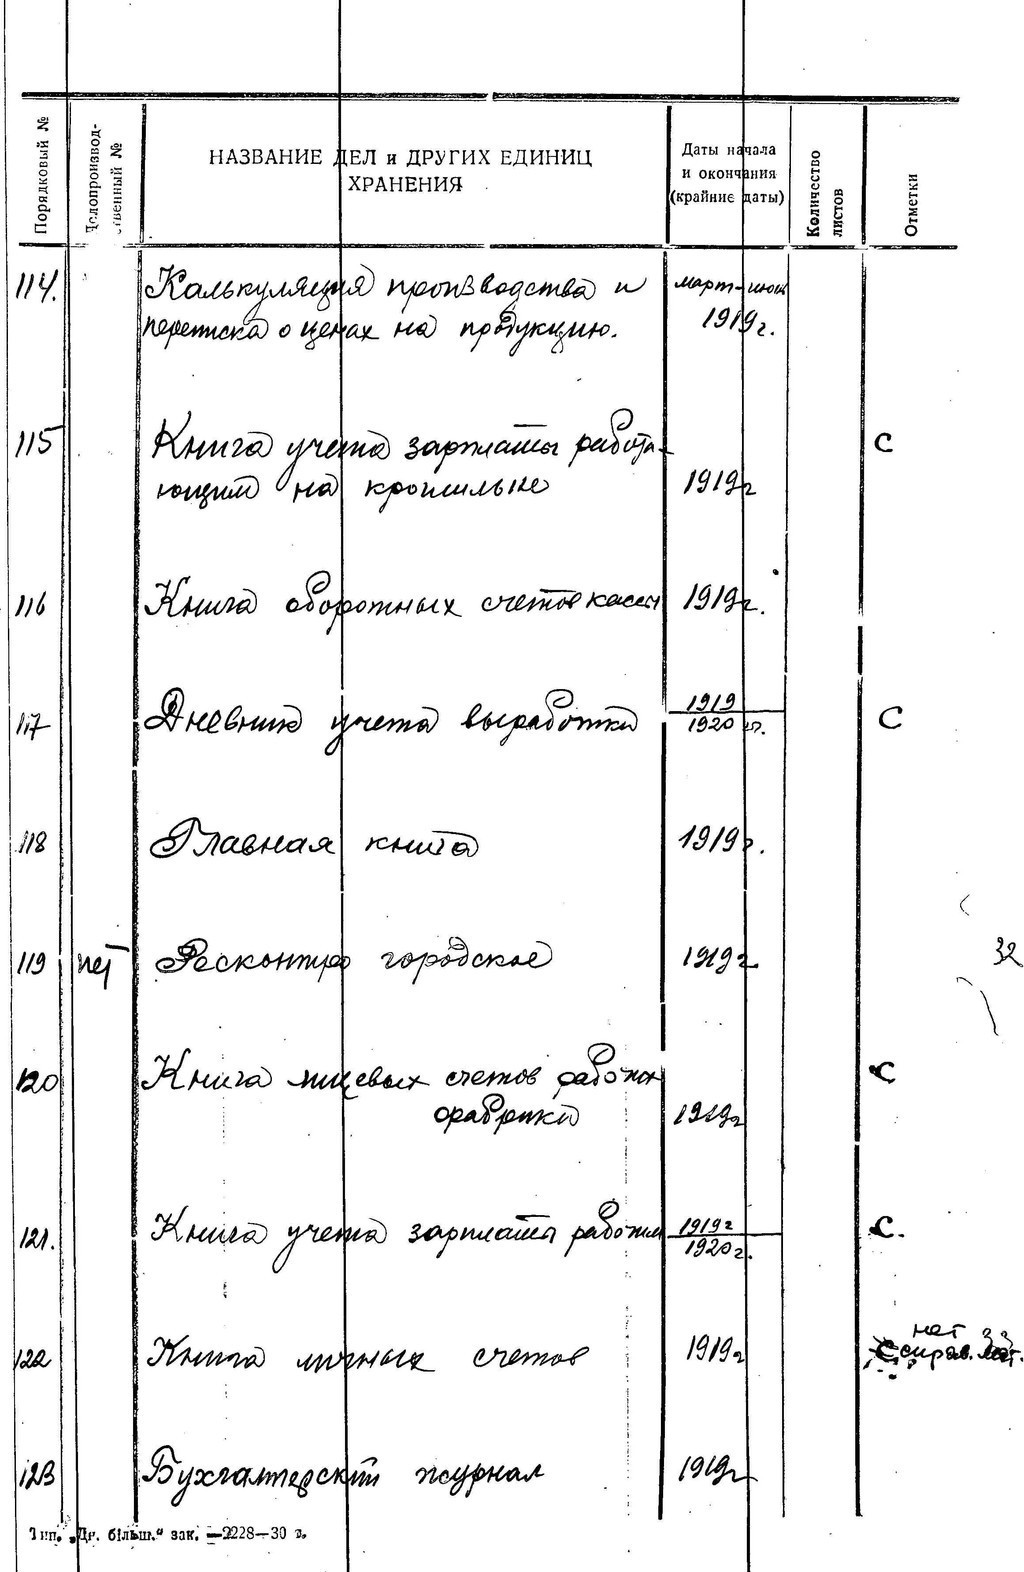 Порядковый №
Делопроизвод-
ственный №
НАЗВАНИЕ ДЕЛ и ДРУГИХ ЕДИНИЦ
ХРАНЕНИЯ
Даты начала
и окончания
(крайние даты)
Количество
листов
Отметки
114. Калькуляция производства и март-июль
переписка о ценах на продукцию. 1919 г.
115 Книга учета зарплаты работа- С
ющим на крошильне 1919 г
116 Книга оборотных счетов кассы 1919 г.
117 Дневник учета выработки 1919 С
1920 гг.
118 Главная книга 1919 г.
119 нет Ресконтро городское 1919 г. 32
120 Книга лицевых счетов рабочих С
фабрики 1919 г
121. Книга учета зарплаты рабочим 1919 г С.
1920 г.
нет 33
122 Книга личных счетов 1919 г С справ.
123 Бухгалтерский журнал 1919 г
Тип. „Дн. більш.“ зак. —2228—30 т.